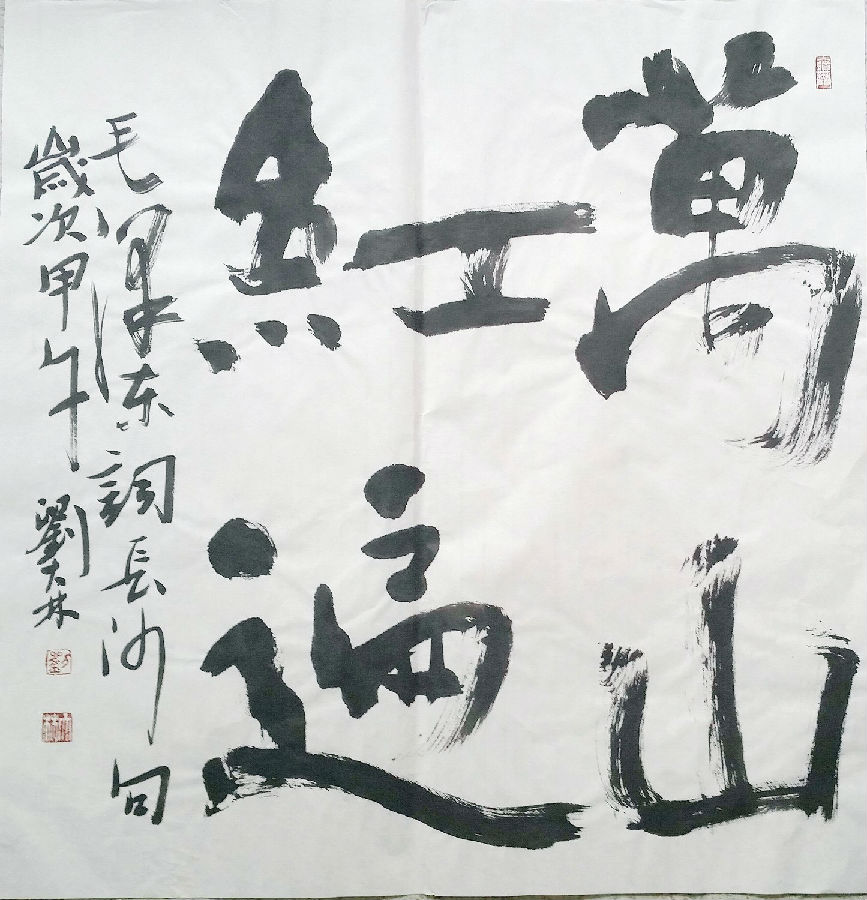 萬山
紅遍
毛澤东詞長沙句
歲次甲午劉大林